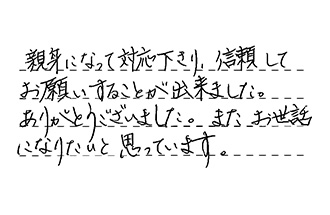 親身になって対応下さり、信頼して
お願いすることが出来ました。
ありがとうございました。また お世話
になりたいと思っています。